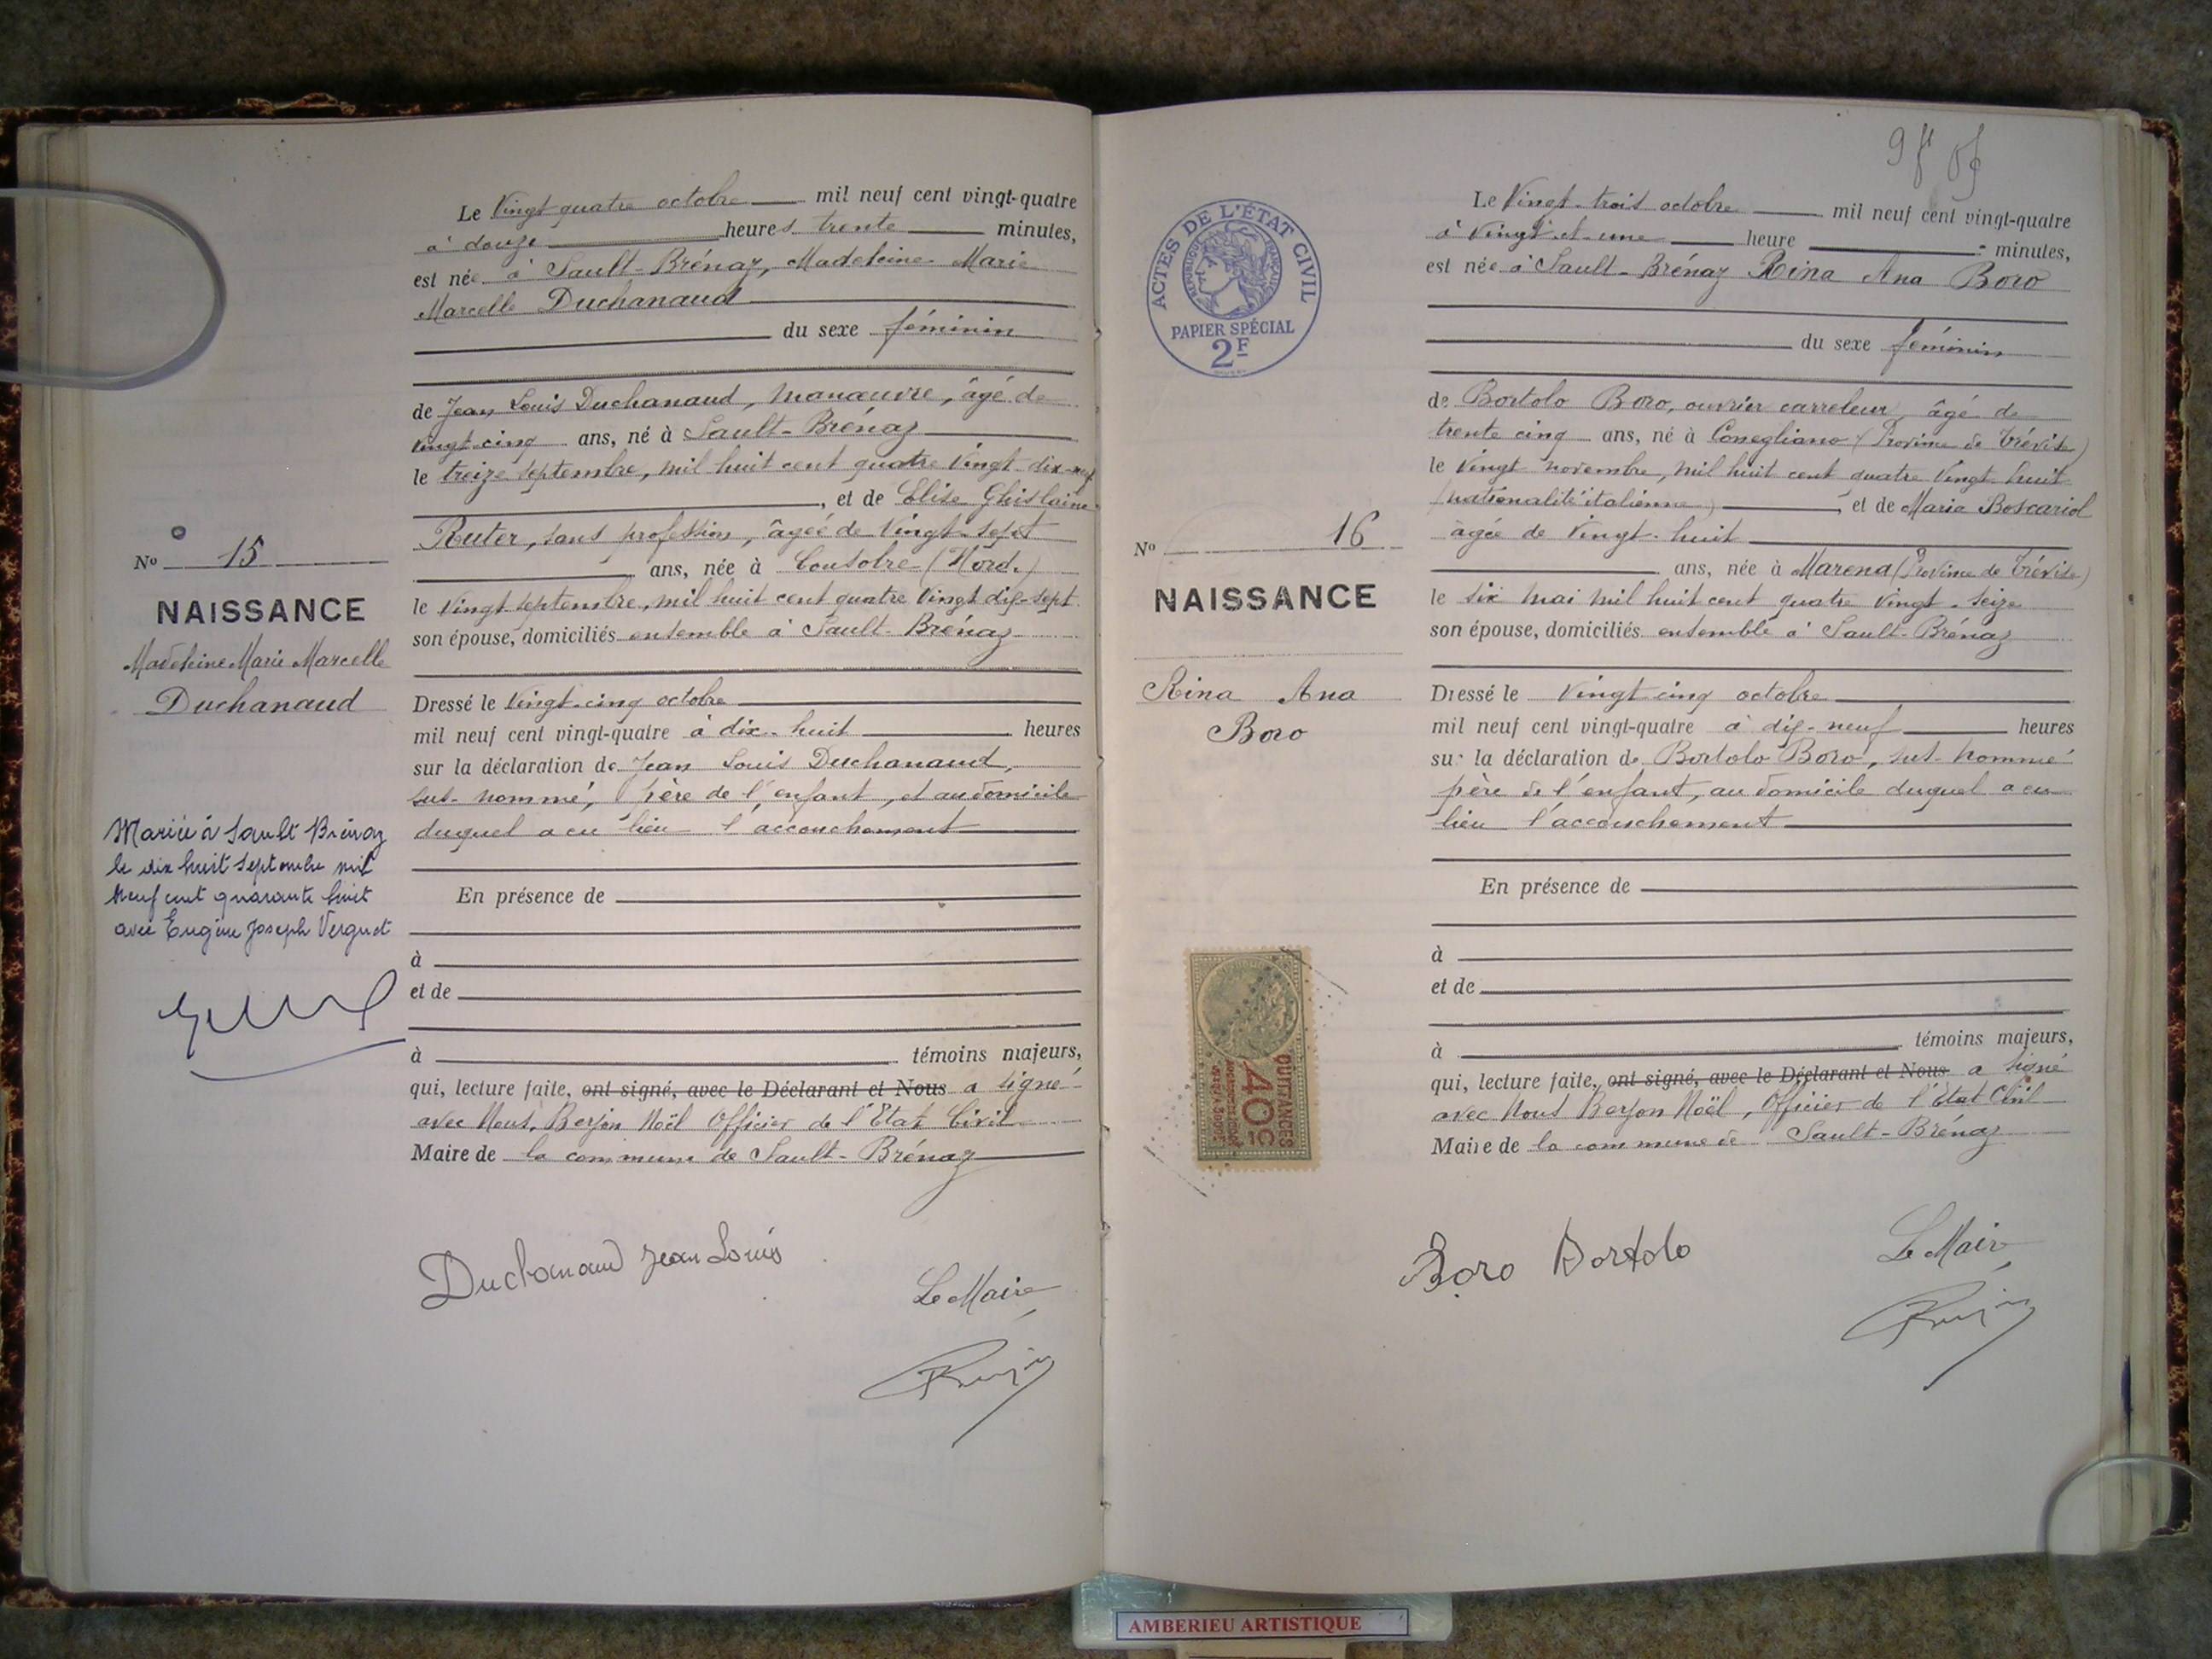 Le Vingt quatre octobre mil neuf cent vingt-quatre
à douze heures trente minutes,
est née à Sault-Brénaz, Madeleine Marie
Marcelle Duchanaud
du sexe féminin
de Jean Louis Duchanaud, manœuvre, âgé de
vingt cinq ans, né à Sault-Brénaz
le treize septembre, mil huit cent quatre vingt dix-neuf
, et de Elise Ghislaine
Ruter, sans profession, âgée de vingt-sept
ans, née à Cousolre (Nord.)
le vingt septembre, mil huit cent quatre vingt dix-sept
son épouse, domiciliés ensemble à Sault-Brénaz
Dressé le vingt-cinq octobre
mil neuf cent vingt-quatre à dix-huit heures
sur la déclaration de Jean Louis Duchanaud,
sus-nommé, père de l'enfant, et au domicile
duquel a eu lieu l'accouchement
En présence de
à
et de
à témoins majeurs,
qui, lecture faite, ont signé, avec le Déclarant et Nous a signé
avec Nous, Berjon Noël Officier de l'Etat Civil
Maire de la commune de Sault-Brénaz
Duchanaud Jean Louis
Le Maire
No 15
NAISSANCE
Madeleine Marie Marcelle
Duchanaud
Mariée à Sault Brénaz
le dix huit septembre mil
neuf cent quarante huit
avec Eugène Joseph Verguet
9f 05
ACTES DE L'ÉTAT CIVIL
RÉPUBLIQUE FRANÇAISE
PAPIER SPÉCIAL
2F
Le Vingt-trois octobre mil neuf cent vingt-quatre
à vingt et une heure minutes,
est née à Sault-Brénaz Rina Ana Boro
du sexe féminin
de Bortolo Boro, ouvrier carreleur, âgé de
trente cinq ans, né à Conegliano (Province de Trévise)
le vingt novembre, mil huit cent quatre vingt huit
(nationalité italienne), et de Maria Boscariol
âgée de vingt-huit
ans, née à Marena (Province de Trévise)
le six mai mil huit cent quatre vingt-seize
son épouse, domiciliés ensemble à Sault-Brénaz
Dressé le vingt cinq octobre
mil neuf cent vingt-quatre à dix-neuf heures
sur la déclaration de Bortolo Boro, sus-nommé
père de l'enfant, au domicile duquel a eu
lieu l'accouchement
En présence de
à
et de
à témoins majeurs,
qui, lecture faite, ont signé, avec le Déclarant et Nous a signé
avec Nous Berjon Noël, Officier de l'Etat Civil
Maire de la commune de Sault-Brénaz
Boro Bortolo
Le Maire
No 16
NAISSANCE
Rina Ana
Boro
QUITTANCES
40c
AMBERIEU ARTISTIQUE